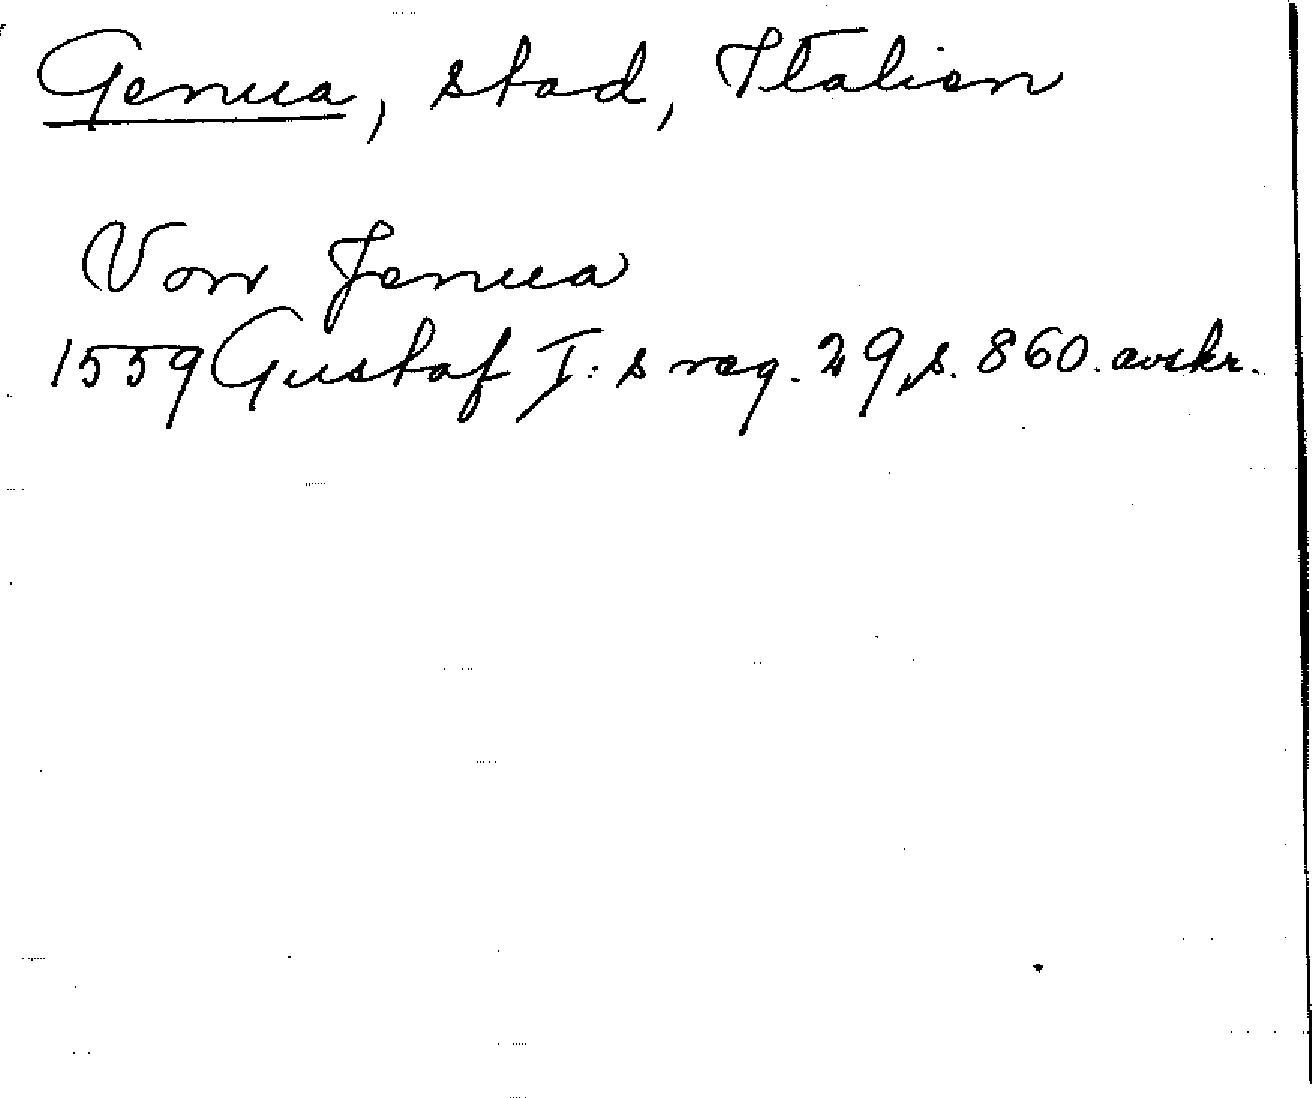 Genua, stad, Italien
Von Jenua
1559 Gustaf I:s reg. 29, s. 860. avskr.